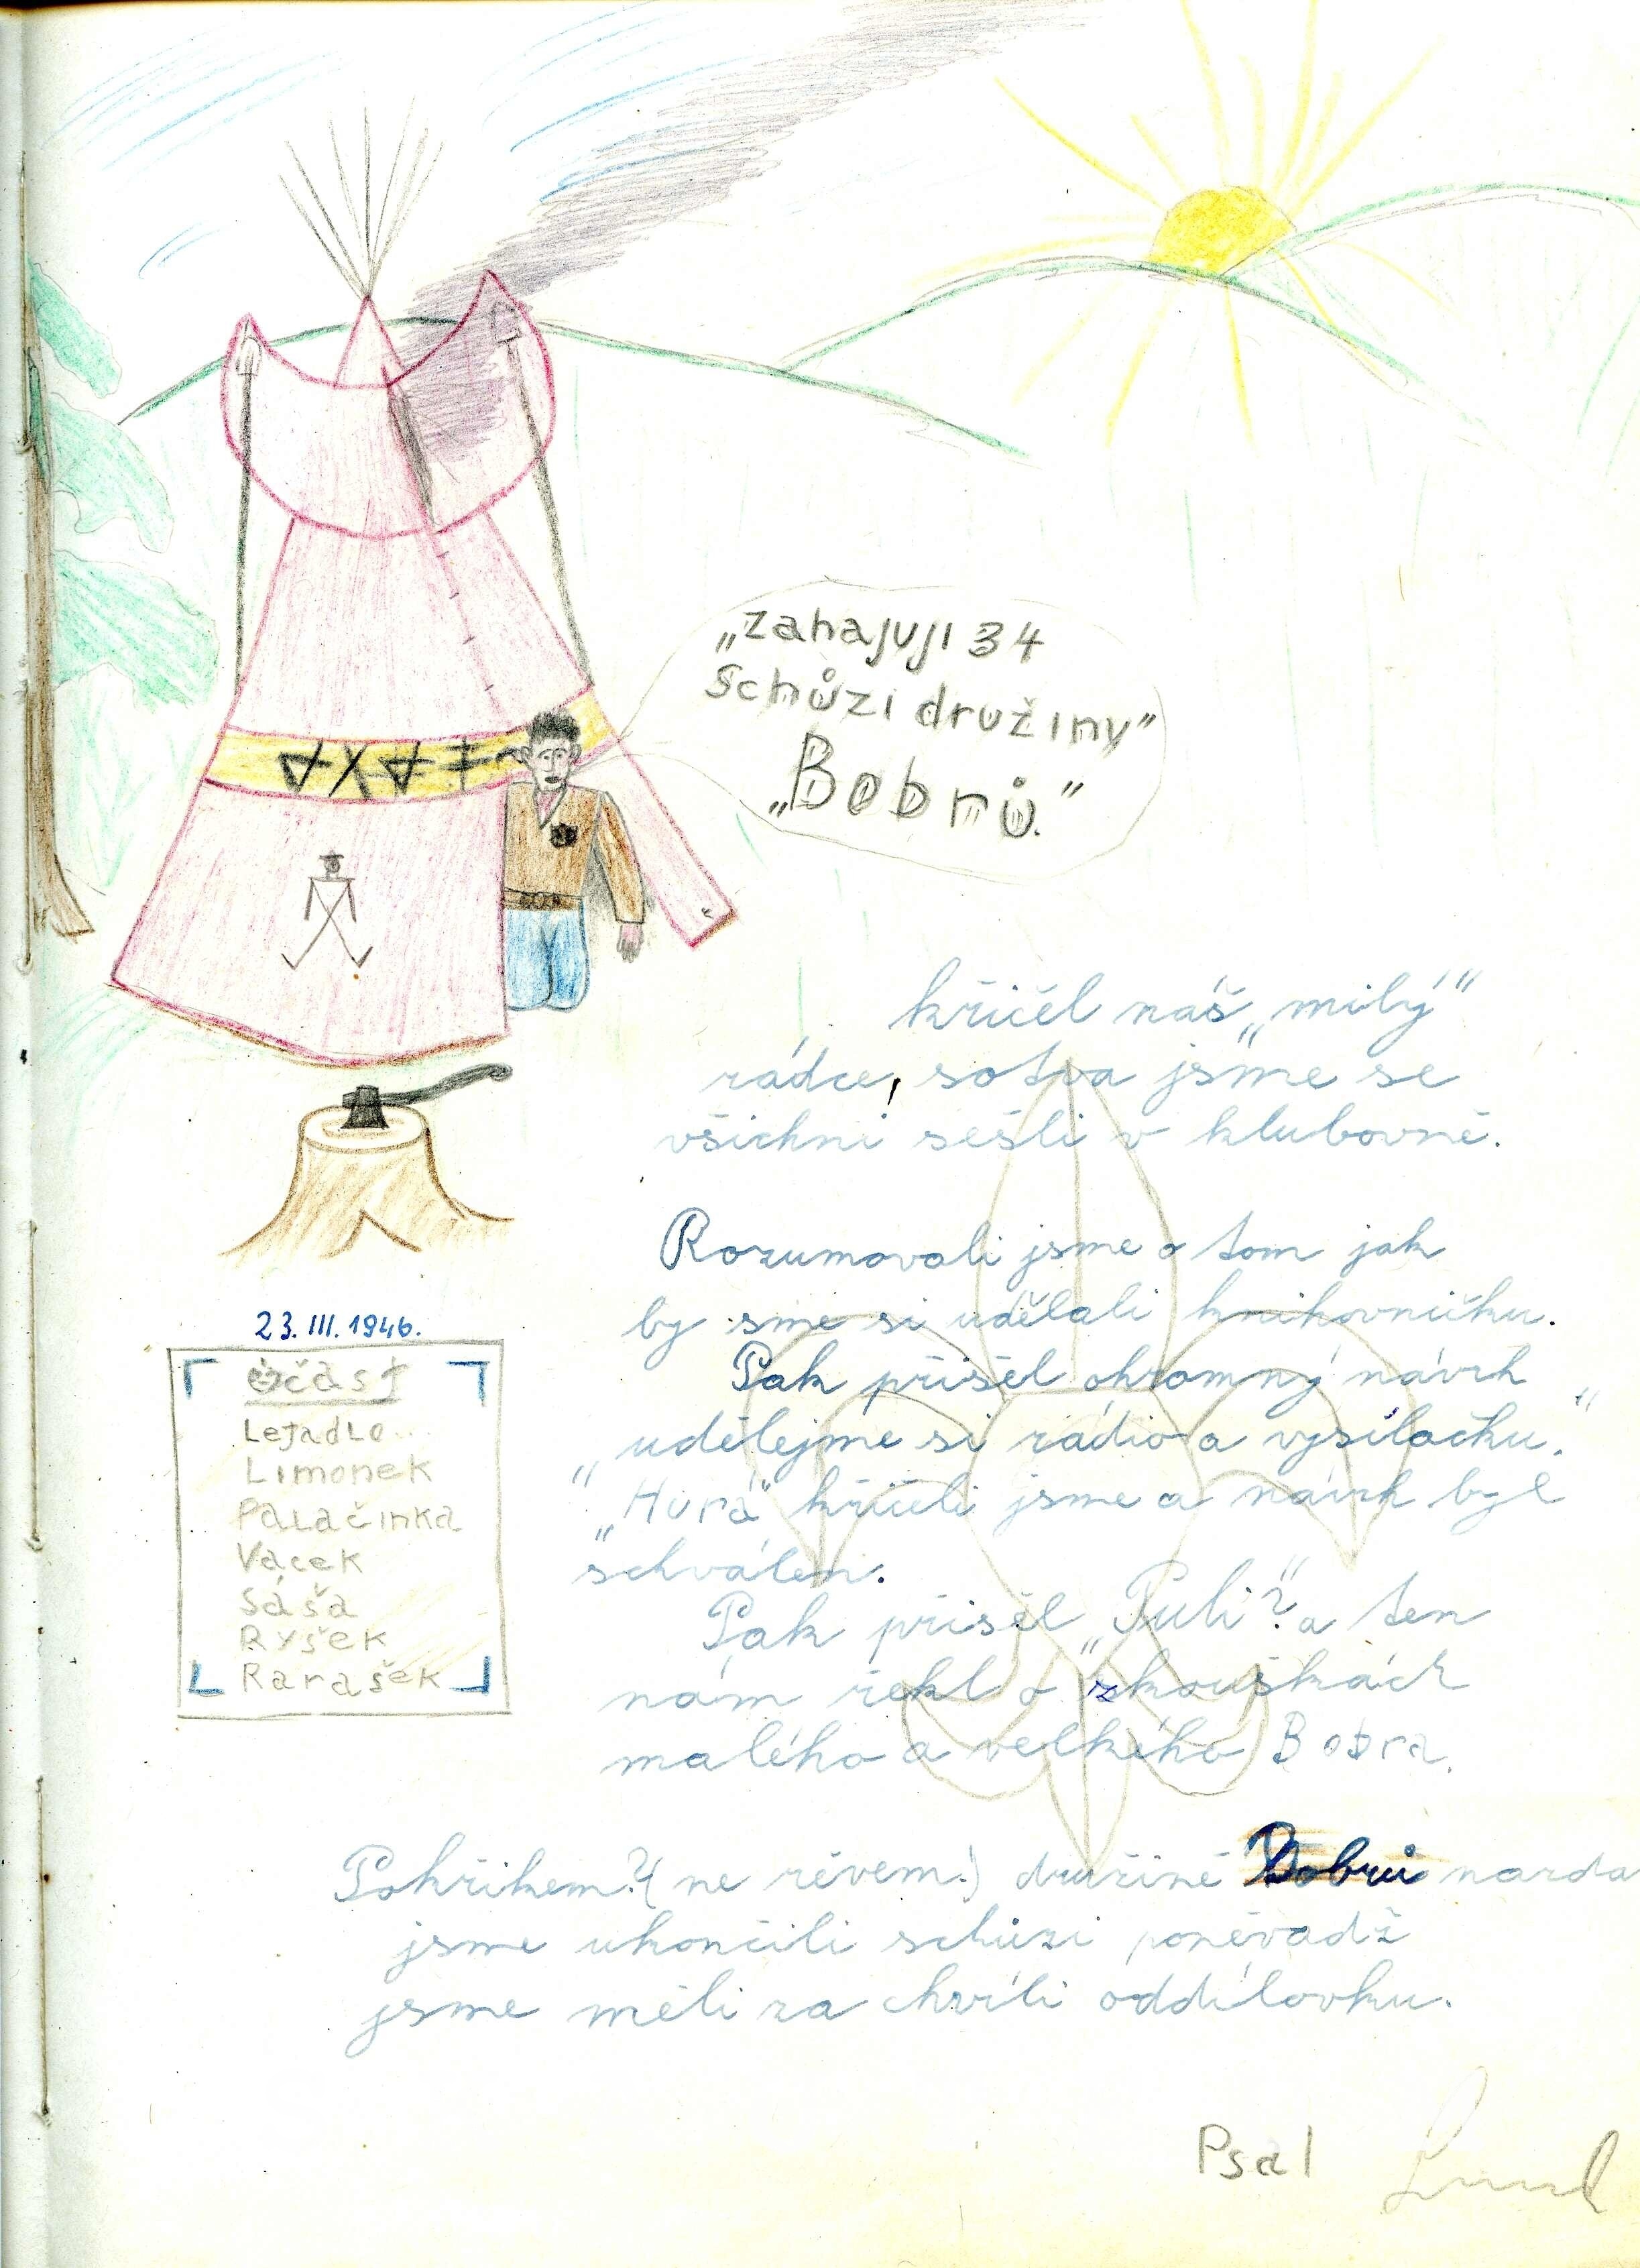 „zahajuji 34
schůzi družiny"
„Bobrů."
křičel náš „milý"
rádce, sotva jsme se
všichni sešli v klubovně.
Rozumovali jsme o tom jak
by sme si udělali knihovničku.
Pak přišel ohromný návrh
„udělejme si rádio a vysílačku."
„Hurá" křičeli jsme a návrh byl
schválen.
Pak přišel „Puli"? a ten
nám řekl o zkouškách
malého a velkého Bobra.
Pokřikem?(ne řevem.) družině Bobrů nazda
jsme ukončili schůzi poněvadž
jsme měli za chvíli oddílovku.
23.III.1946.
Účast
Letadlo..
Limonek
Palačinka
Vacek
Sáša
Ryšek
Rarašek
Psal